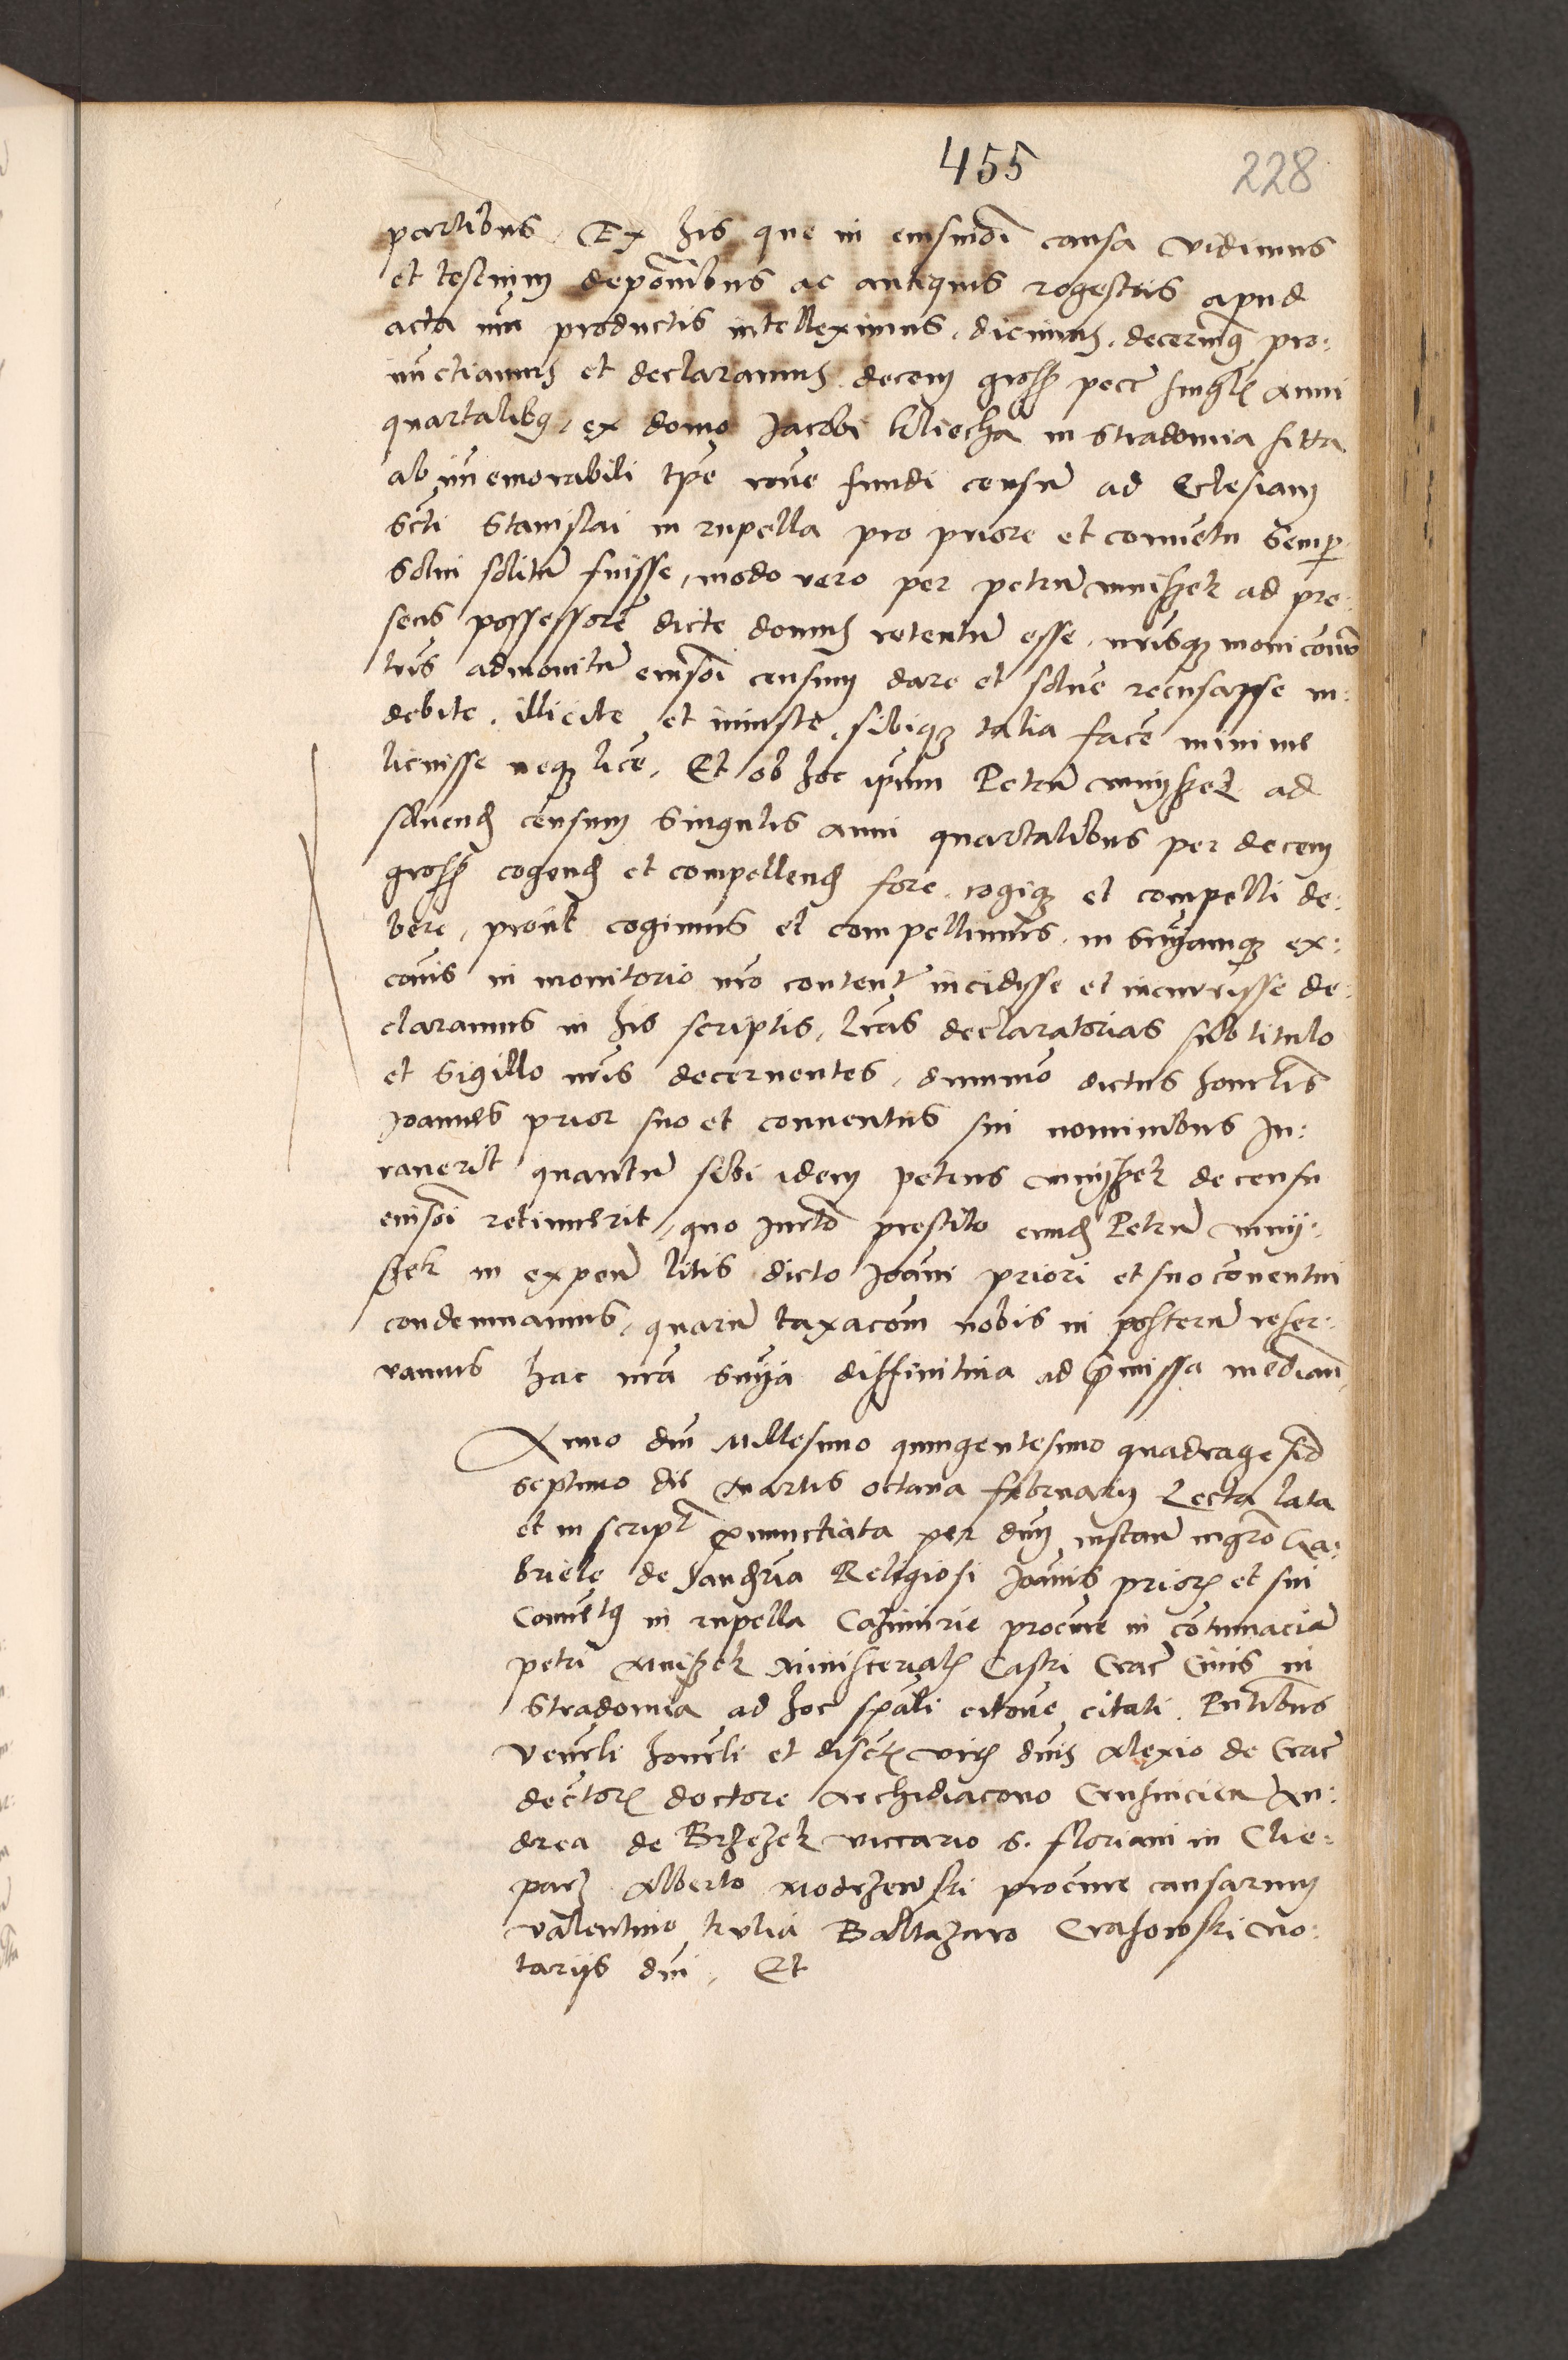 455
228
partibus, Ex his que in eiusmodi causa vidimus
et testium deponibus ac antiquis regestris apud
acta nra productis intelleximus, dicimus, decernimq pro:
nunctiamus et declaramus decem gross pecc singlis anni
quartalibq, ex domo Jacobi Kliecha in Stradomia sitta
ab immemorabili tpe rone fundi censu ad Eclesiam
Scti Stanislai in rupella pro priore et conuetu semp
Solui solitu fuisse, modo vero per petru mnissek ad pre:
sens possessore dicte domus retentu esse, nrisq moni
tus admonitu eiusdi censum dare et solue recusasse in:
debite, illicite et iniuste, sibiq talia face minime
licuisse neq lice, Et ob hoc ipum Petru mnyssek ad
soluend censum Singulis anni quartalibus per decem
gross cogend et compellend fore, cogiq et compelli de:
bere, prout cogimus et compellimus, in snyamq ex:
conis in monitorio nro content incidysse et incurrysse de:
claramus in his scriptis, lras declaratorias sub titulo
et Sigillo nris decernentes, dummo dictus honrlis
Joannes prior suo et conuentus sui nominibus Ju:
rauerit quantu sibi idem petrus mnyssek de censu
eiusdi retinuerit, quo Jurto prestito eund Petru mny:
szek in expen litis dicto Joani priori et suo conentui
condemnamus, quaru taxacom nobis in posteru reser:
uamus hac nra snya diffinitiua ad pmissa median
Anno dni Millesimo quingentesimo quadragesio
septimo die Martis octaua february Lecta lata
et in script pnunctiata per dnm instan mgro Ga:
briele de Religiosi Joanis prioris et sui
Conuetq in rupella Cazimirie procure in cotumacia
petri Mnissek Ministerialis Castri Crac Ciuis in
Stradomia ad hoc spali citone citati. Pntibus
Venrli honrli et discrtis viris dnis Alexio de Crac
dector doctore Archidiacono Crusuicien An:
drea de Brzezek viccario S. floriani in Cle:
parz Alberto Modrzewski procure causarum
Valentino Kulia Baltazaro Crasowski no:
tarijs dni, Et